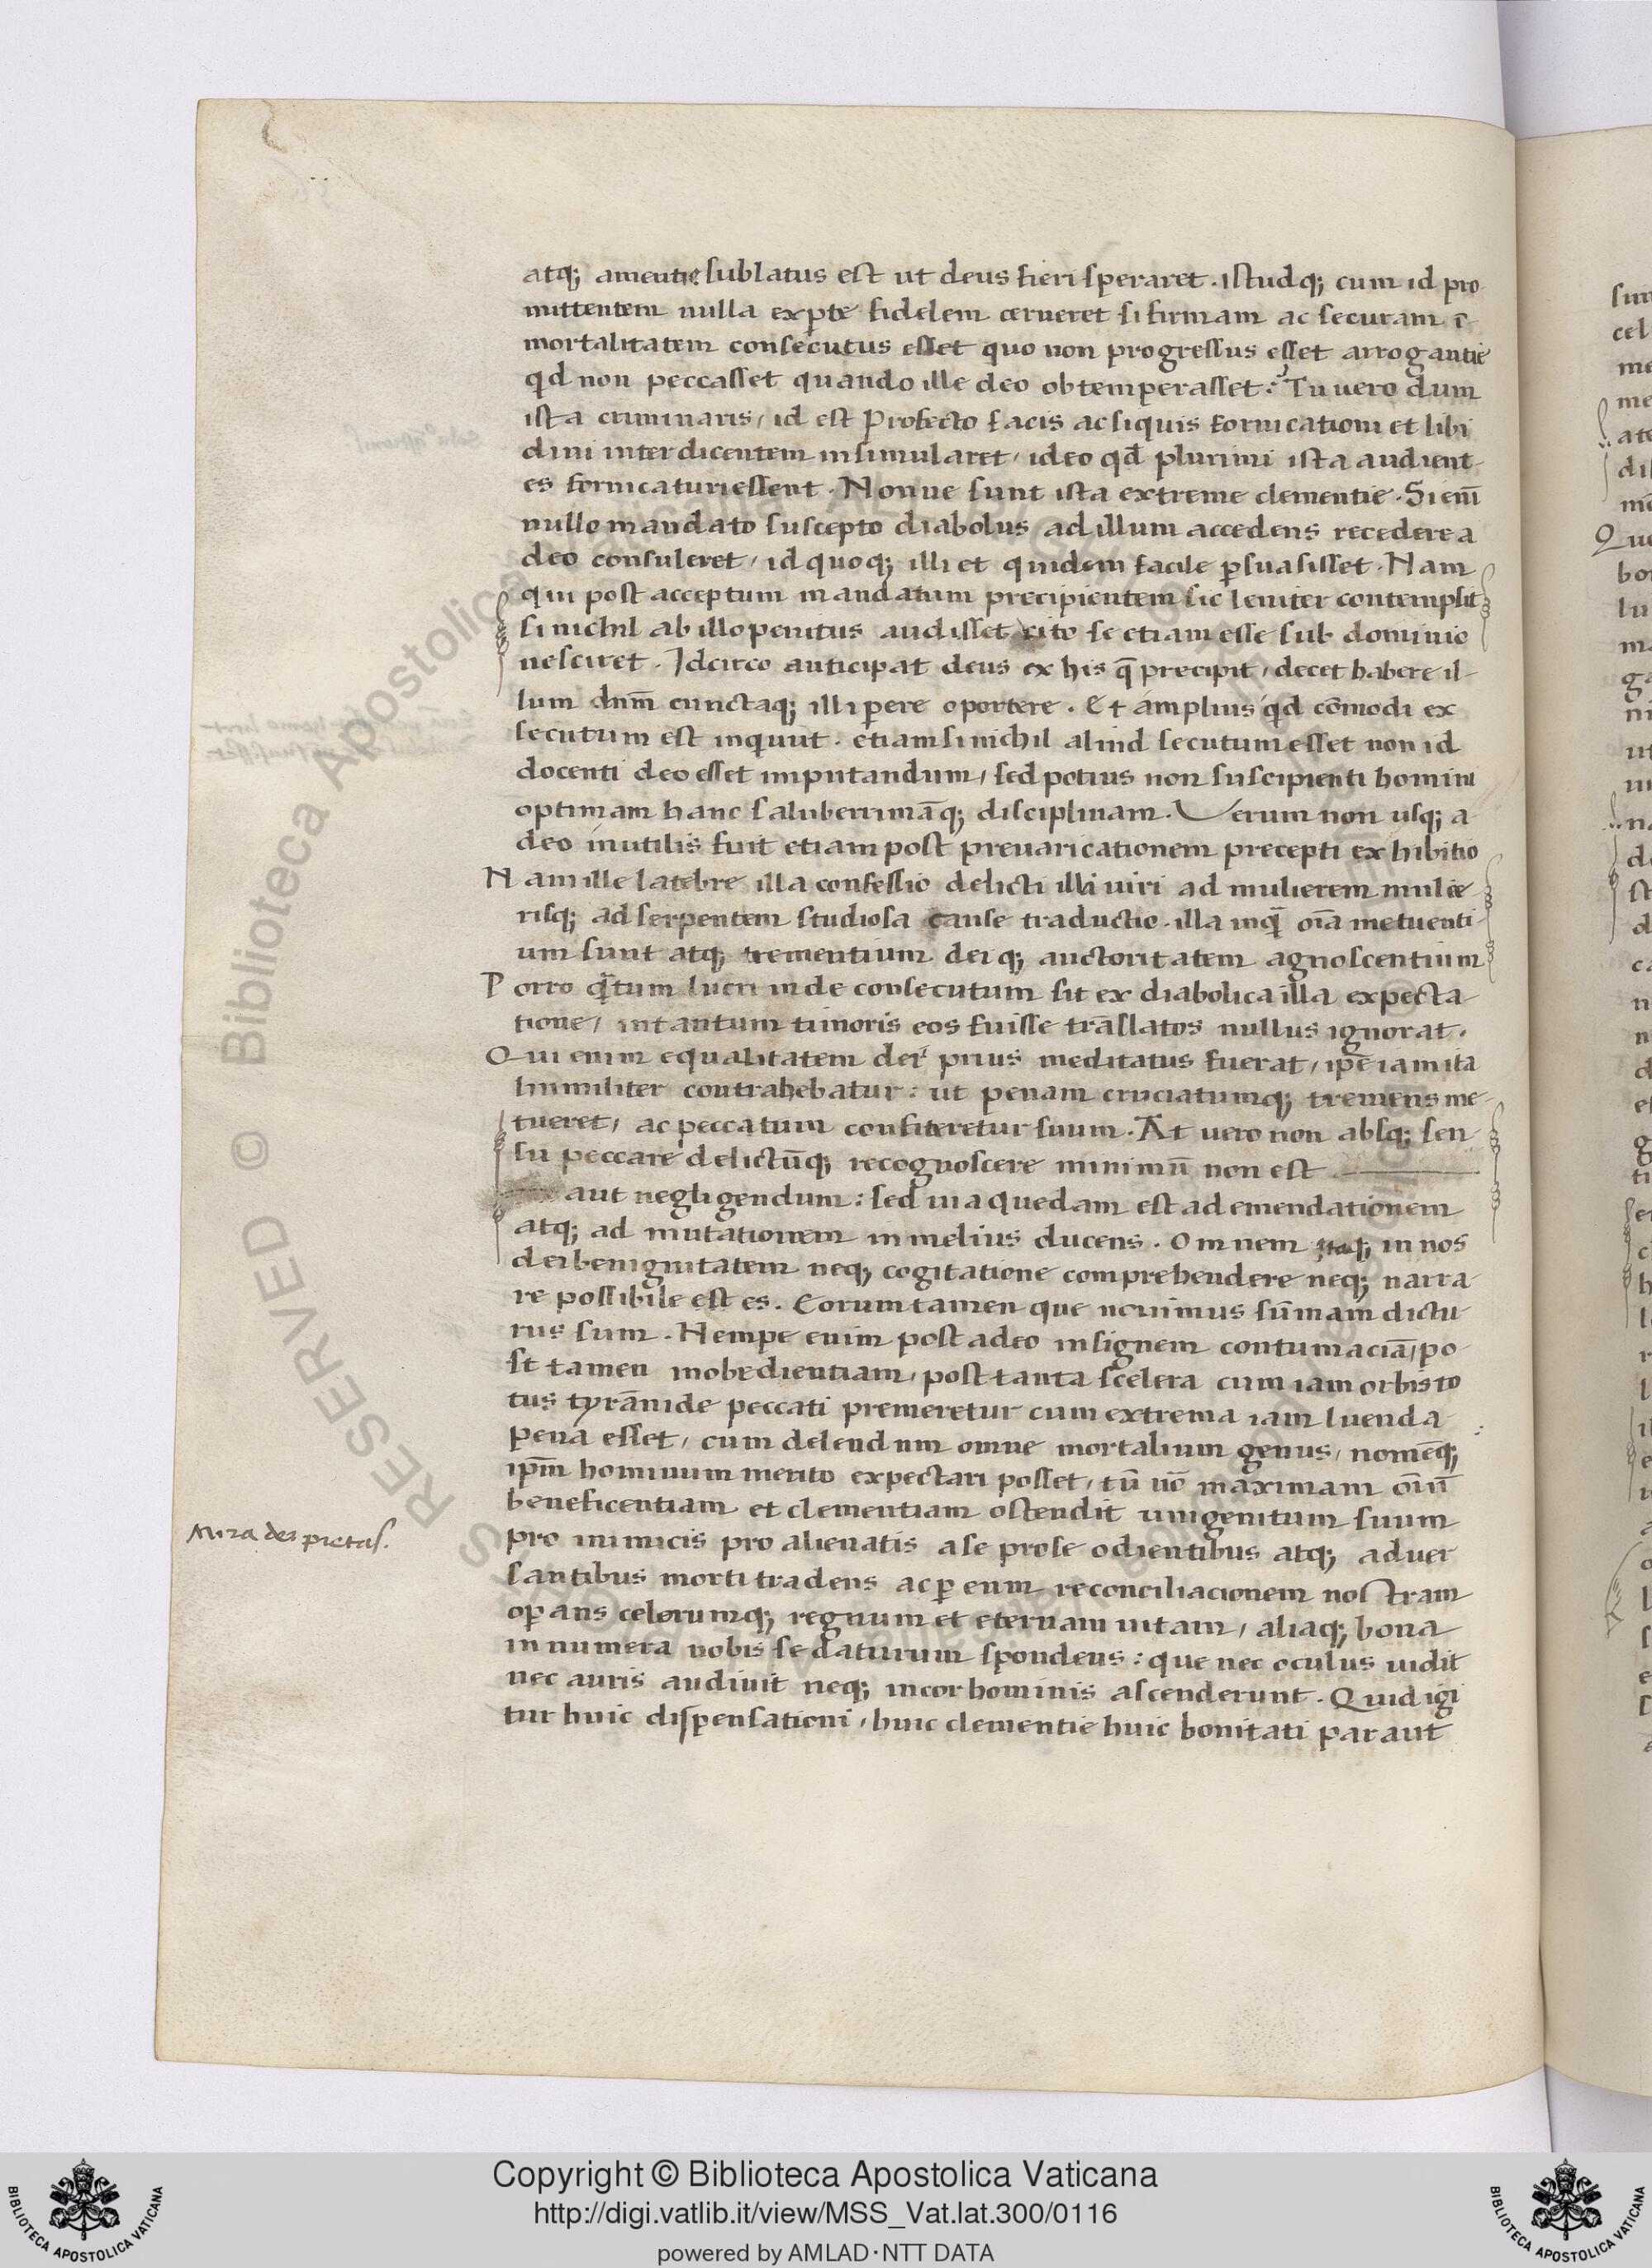 atq; amentie sublatus est ut deus fieri speraret. istudq; cum id pro
mittentem nulla expte fidelem cerneret si firmam ac securam ī
mortalitatem consecutus esset quo non progressus esset arrogantie
qd non peccasset quando ille deo obtemperasset? Tu uero dum
ista criminaris, id est Profecto facis ac siquis fornicationi et libi
dini interdicentem insimularet, ideo qđ plurimi ista audient-
es fornicaturi essent. Nonne sunt ista extreme clementie. Si enī
nullo mandato suscepto diabolus ad illum accedens recedere a
deo consuleret, id quoq; illi et quidem facile psuasisset. Nam
qui post acceptum mandatum precipientem sic leniter contempsit
si nichil ab illo penitus audisset cito se etiam esse sub dominio
nesciret. Idcirco anticipat deus ex his q̄ precipit, decet habere il-
lum dnm̄ cunctaq; illi pere oportere. Et amplius qd cōmodi ex
secutum est inquiut. etiam si nichil aliud secutum esset non id
docenti deo esset imputandum, sed potius non suscipienti homini
optimam hanc saluberrimāq; disciplinam. Verum non usq; a
deo inutilis fuit etiam post preuaricationem precepti exhibitio
Nam ille latebre illa confessio delicti illi uiri ad mulierem mulie
risq; ad serpentem studiosa cause traductio. illa inq̄ oīa metuenti-
um sunt atq; trementium dei q; auctoritatem agnoscentium
Porro q̄tum lucri inde consecutum sit ex diabolica illa expecta
tione, intantum timoris eos fuisse trāslatos nullus ignorat.
Qui enim equalitatem dei prius meditatus fuerat, ipē iam ita
humiliter contrahebatur: ut penam cruciatumq; tremens me-
tueret, ac peccatum confiteretur suum. At uero non absq; sen
su peccare delictūq; recognoscere minimū non est
aut negligendum: sed uia quedam est ad emendationem
atq; ad mutationem in melius ducens. Omnem itaq; in nos
dei benignitatem neq; cogitatione comprehendere neq; narra
re possibile est es. Eorum tamen que nouimus sūmam dictu
rus sum. Nempe enim post adeo insignem contumaciā, po
st tamen inobedientiam, post tanta scelera cum iam orbis to
tus tyrānide peccati premeretur cum extrema iam luenda
pena esset, cum delendum omne mortalium genus, nomēq;
ipm̄ hominum merito expectari posset, tū uō maximam oīuī
beneficentiam et clementiam ostendit unigenitum suum
pro inimicis pro alienatis a se pro se odientibus atq; aduer
santibus morti tradens ac p eum reconciliacionem nostram
opans celorumq; regnum et eternam uitam, aliaq; bona
innumera nobis se daturum spondens: que nec oculus uidit
nec auris audiuit neq; in cor hominis ascenderunt. Quid igi
tur huic dispensationi, huic clementie huic bonitati par aut
Mira dei pietas.
© Biblioteca Apostolica
RESERVED
Copyright © Biblioteca Apostolica Vaticana
http://digi.vatlib.it/view/MSS_Vat.lat.300/0116
powered by AMLAD·NTT DATA
BIBLIOTECA APOSTOLICA VATICANA
BIBLIOTECA APOSTOLICA VATICANA